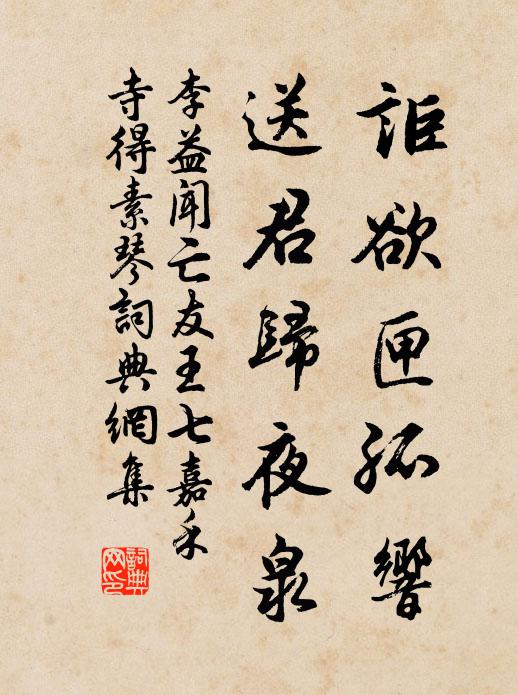 詎欲匣孤響
送君歸夜泉
李益聞亡友王七嘉禾
寺得素琴詞典網集
詞典网印